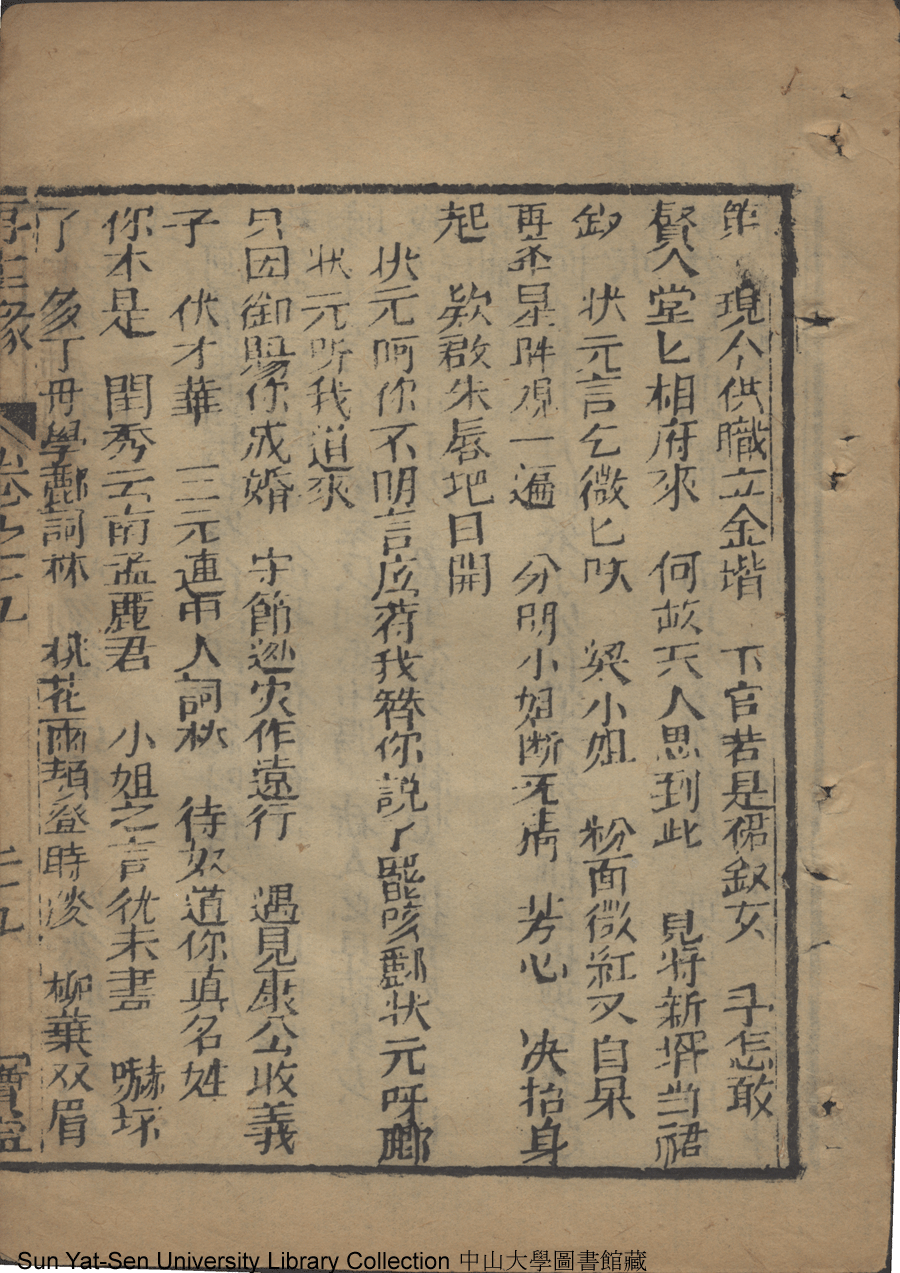 第 現今供職立金堦 下官若是裙釵女 斗怎敢
賢人堂匕相府來 何故夫人思到此 見將新壻当裙
釵 状元言乞微匕咲 梁小姐 粉面微紅又自呆
再坐星眸覌一遍 分明小姐断无清 芳心 决抬身
起 欵啟朱唇把日開
状元呵你不明言庅待我替你説了罷咳酈状元呀酈
状元听我道來
只因御賜你成婚 守節迯灾作遠行 遇見康公收義
子 伏才華 三元連甲人詞林 待奴道你真名姓
你本是 閨秀云南孟麗君 小姐之言犹未尽 嚇坏
了 多丁母學酈詞林 桃花兩頬登時淡 柳葉双眉
再生緣 卷之十九 二十九 寶
Sun Yat-Sen University Library Collection 中山大學圖書館藏